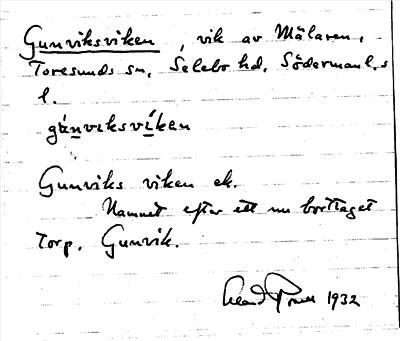 Gunviksviken, vik av Mälaren,
Toresunds sn, Selebo hd, Södermanl.s
l.
gúnviksvíken
Gunviks viken ek.
Namnet efter ett nu borttaget
torp, Gunvik.
1932